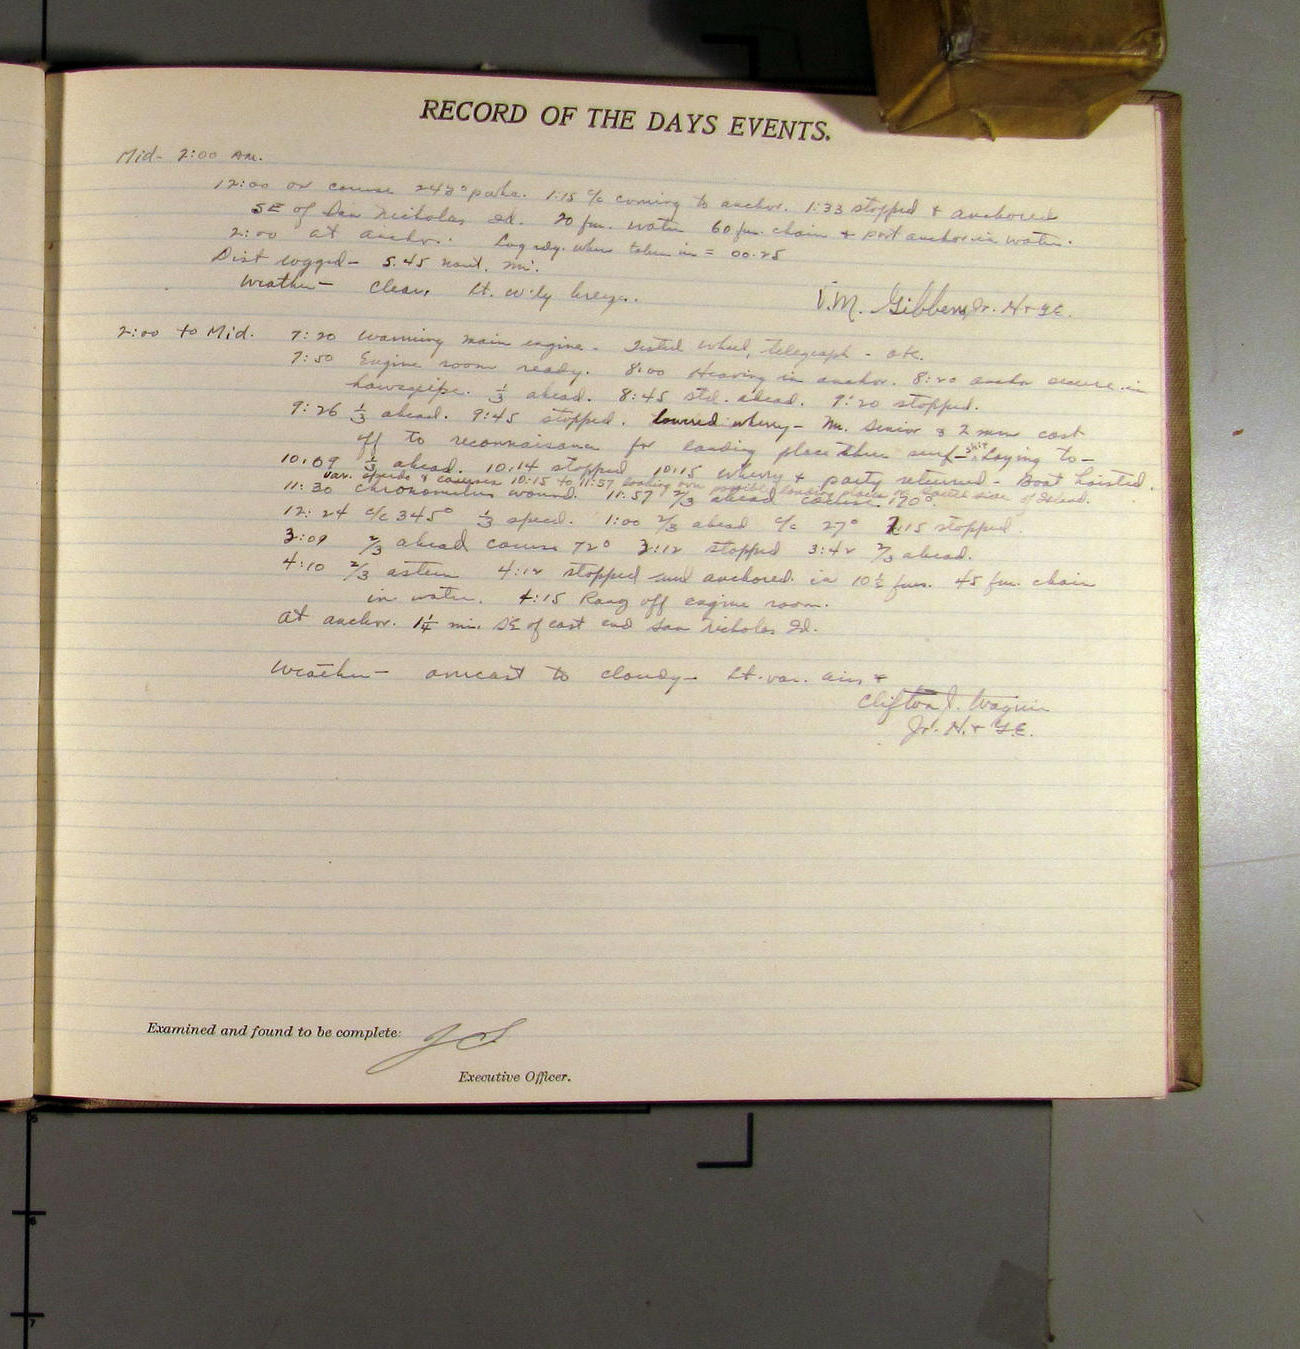 RECORD OF THE DAYS EVENTS.
Mid- 2:00 AM.
12:00 on course 243° p.s.c. 1:15 c/c coming to anchor. 1:33 stopped & anchored
SE of San Nicholas Id. 20 fm. water 60 fm. chain & port anchor in water.
2:00 at anchor. Log rdg. when taken in = 00.25
Dist logged- 5.45 naut. mi.
Weather- Clear, Lt. w'ly breeze.
V.M. Gibbens, Jr. H & GE.
2:00 to Mid. 7:20 Warming main engine. Tested wheel, telegraph - ok.
7:50 Engine room ready. 8:00 Heaving in anchor. 8:20 anchor secure in
hawsepipe. 1/3 ahead. 8:45 std. ahead. 9:20 stopped.
9:26 1/3 ahead. 9:45 stopped. lowered wherry- Mr. Senior & 2 men cast
off to reconnaisance for landing place thru surf- ship laying to-
10:09 1/3 ahead. 10:14 stopped 10:15 wherry & party returned- Boat hoisted.
Var. speeds & courses 10:15 to 11:57 looking over possible landing places on south side of Island.
11:30 chronometers wound. 11:57 2/3 ahead course 170°.
12:24 c/c 345° 1/3 speed. 1:00 2/3 ahead c/c 27° 2:15 stopped.
3:09 2/3 ahead course 72° 3:12 stopped 3:42 2/3 ahead.
4:10 2/3 astern 4:12 stopped and anchored in 10 1/2 fms. 45 fm. chain
in water. 4:15 Rang off engine room.
At anchor. 1 1/4 mi. SE of east end San Nicholas Id.
Weather- overcast to cloudy- Lt. var. airs
Clifton J. Wagner
Jr. H. & G.E.
Examined and found to be complete:
Executive Officer.